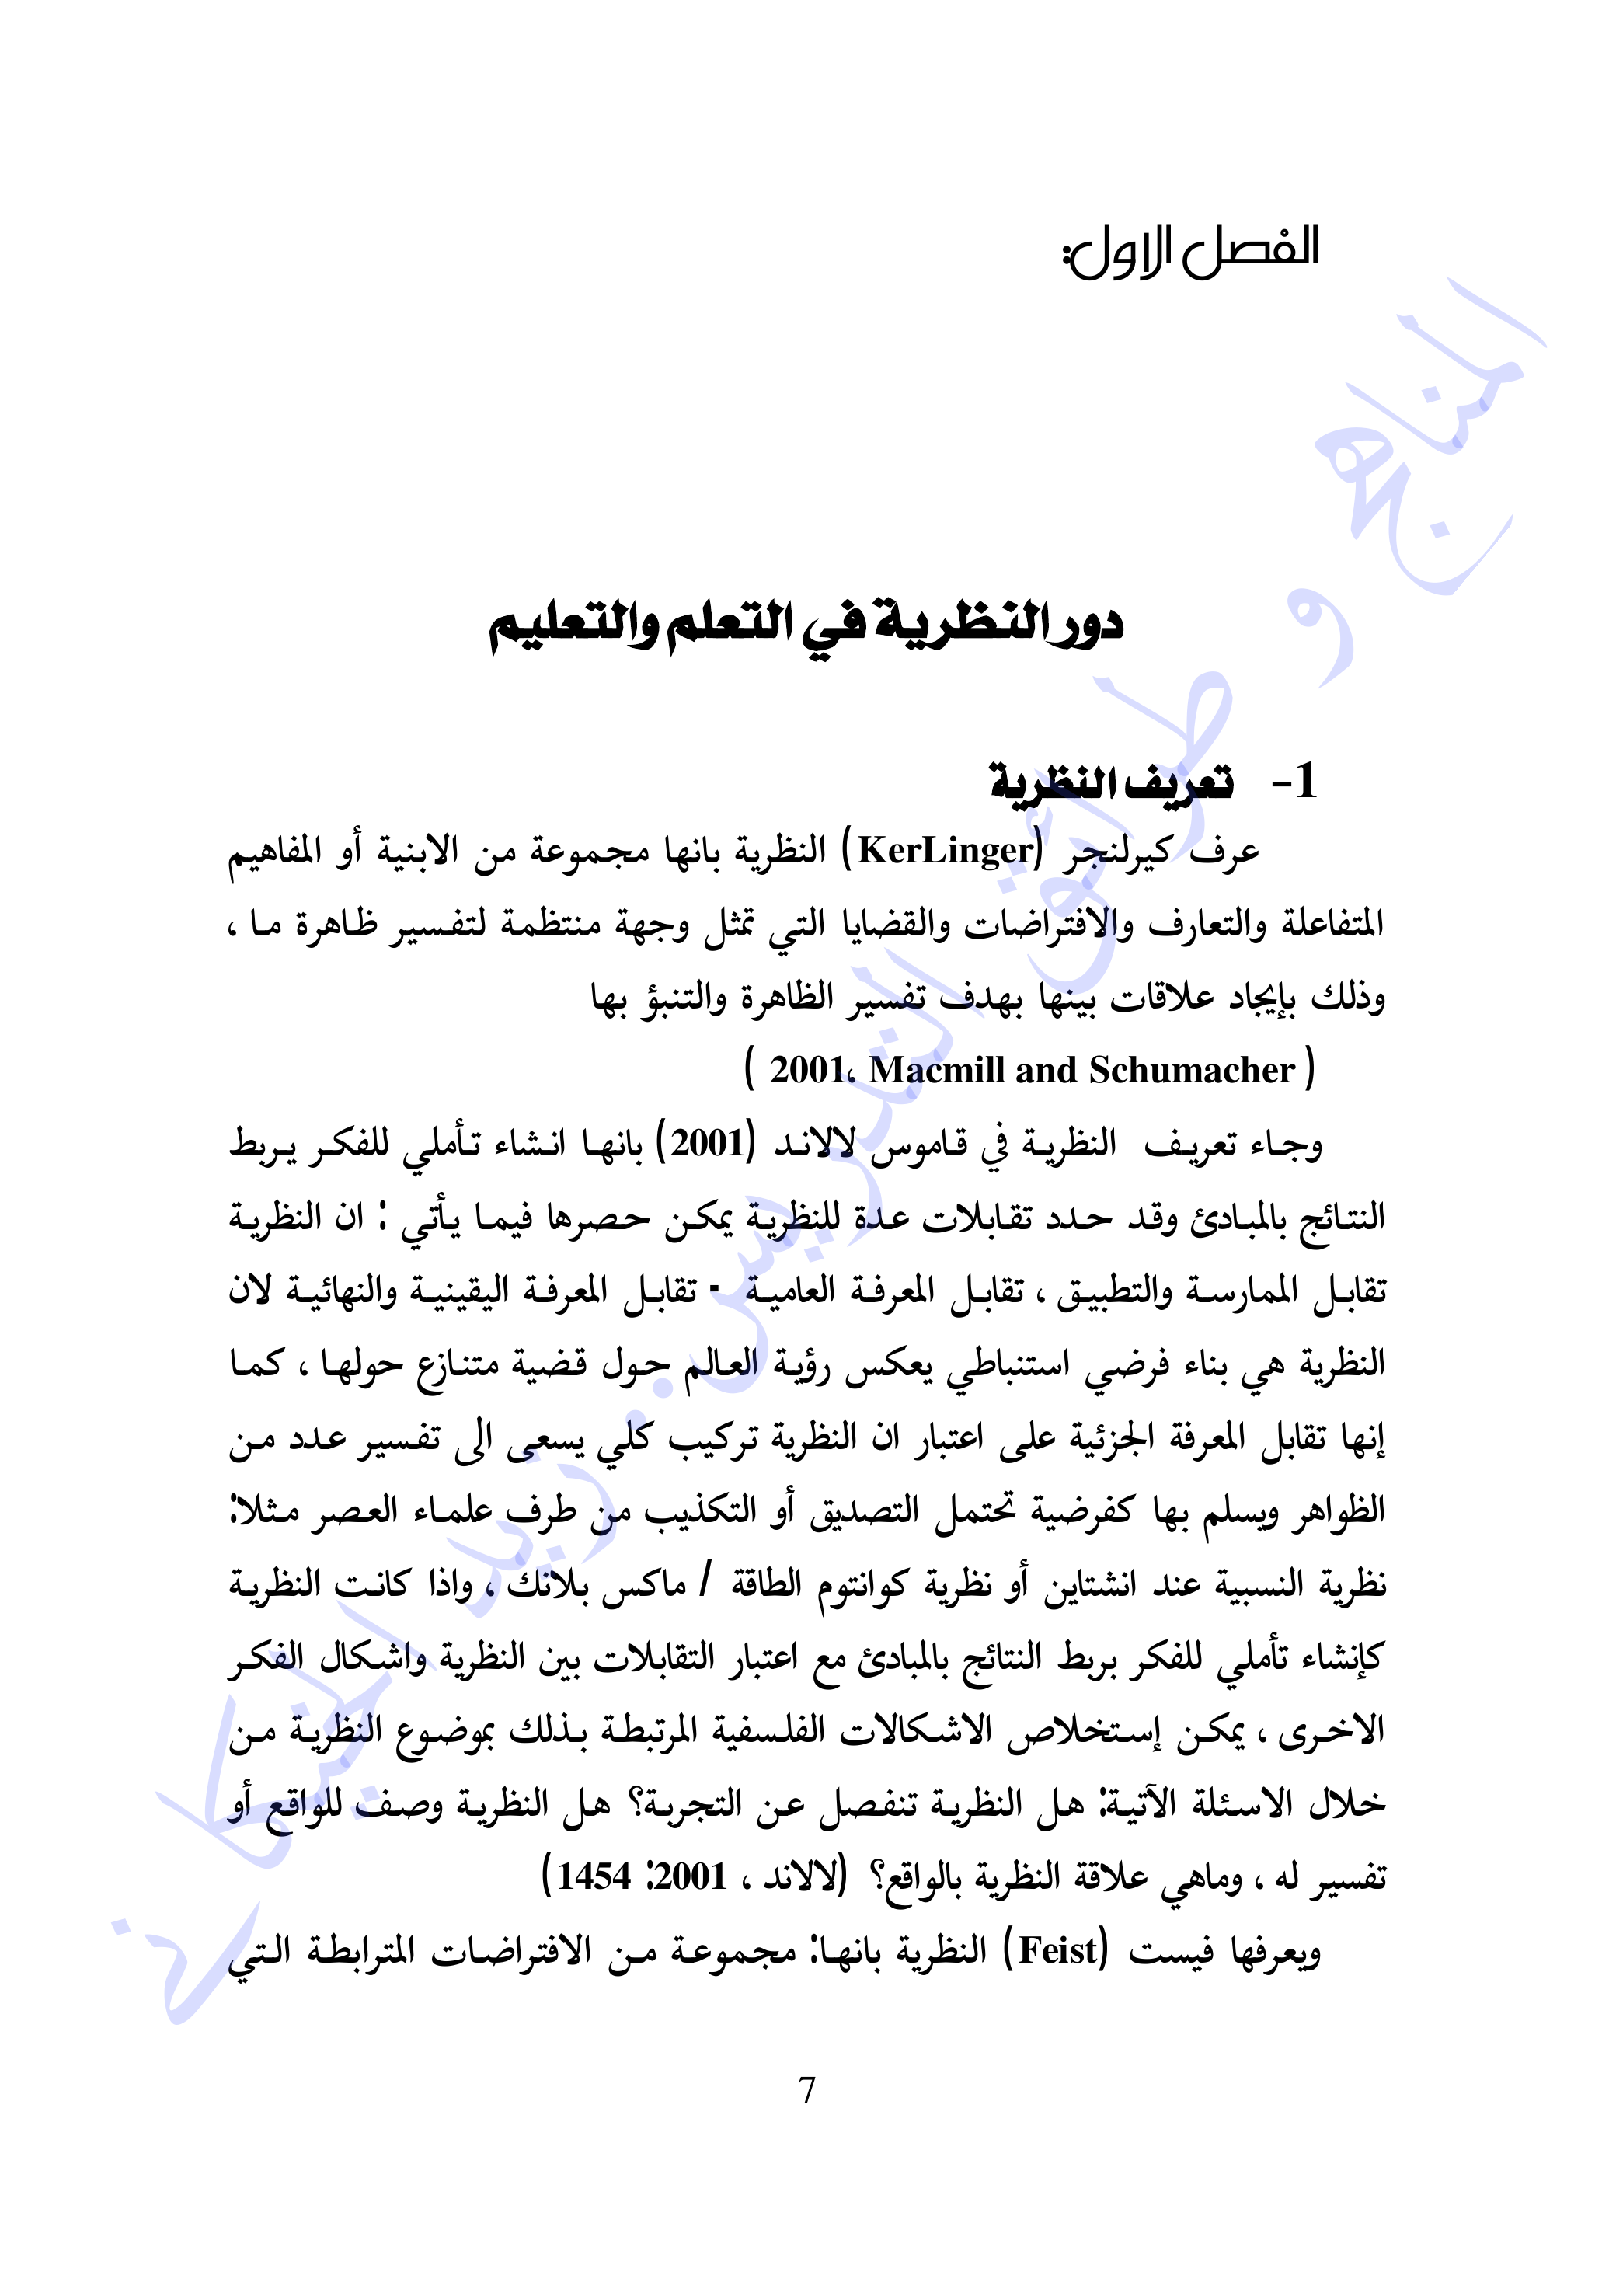 الفصل الاول:
دور النظرية في التعلم والتعليم
1- تعريف النظرية
عرف كيرلنجر (KerLinger) النظرية بانها مجموعة من الابنية أو المفاهيم
المتفاعلة والتعارف والافتراضات والقضايا التي تمثل وجهة منتظمة لتفسير ظاهرة ما ،
وذلك بإيجاد علاقات بينها بهدف تفسير الظاهرة والتنبؤ بها
( Macmill and Schumacher ،2001 )
وجاء تعريف النظرية في قاموس لالاند (2001) بانها انشاء تأملي للفكر يربط
النتائج بالمبادئ وقد حدد تقابلات عدة للنظرية يمكن حصرها فيما يأتي : ان النظرية
تقابل الممارسة والتطبيق ، تقابل المعرفة العامية - تقابل المعرفة اليقينية والنهائية لان
النظرية هي بناء فرضي استنباطي يعكس رؤية العالم حول قضية متنازع حولها ، كما
إنها تقابل المعرفة الجزئية على اعتبار ان النظرية تركيب كلي يسعى الى تفسير عدد من
الظواهر ويسلم بها كفرضية تحتمل التصديق أو التكذيب من طرف علماء العصر مثلا:
نظرية النسبية عند انشتاين أو نظرية كوانتوم الطاقة / ماكس بلانك ، واذا كانت النظرية
كإنشاء تأملي للفكر بربط النتائج بالمبادئ مع اعتبار التقابلات بين النظرية واشكال الفكر
الاخرى ، يمكن إستخلاص الاشكالات الفلسفية المرتبطة بذلك بموضوع النظرية من
خلال الاسئلة الآتية: هل النظرية تنفصل عن التجربة؟ هل النظرية وصف للواقع أو
تفسير له ، وماهي علاقة النظرية بالواقع؟ (لالاند ، 2001: 1454)
ويعرفها فيست (Feist) النظرية بانها: مجموعة من الافتراضات المترابطة التي
7
المناهج و طرائق التدريس.. زيد الخيكاني